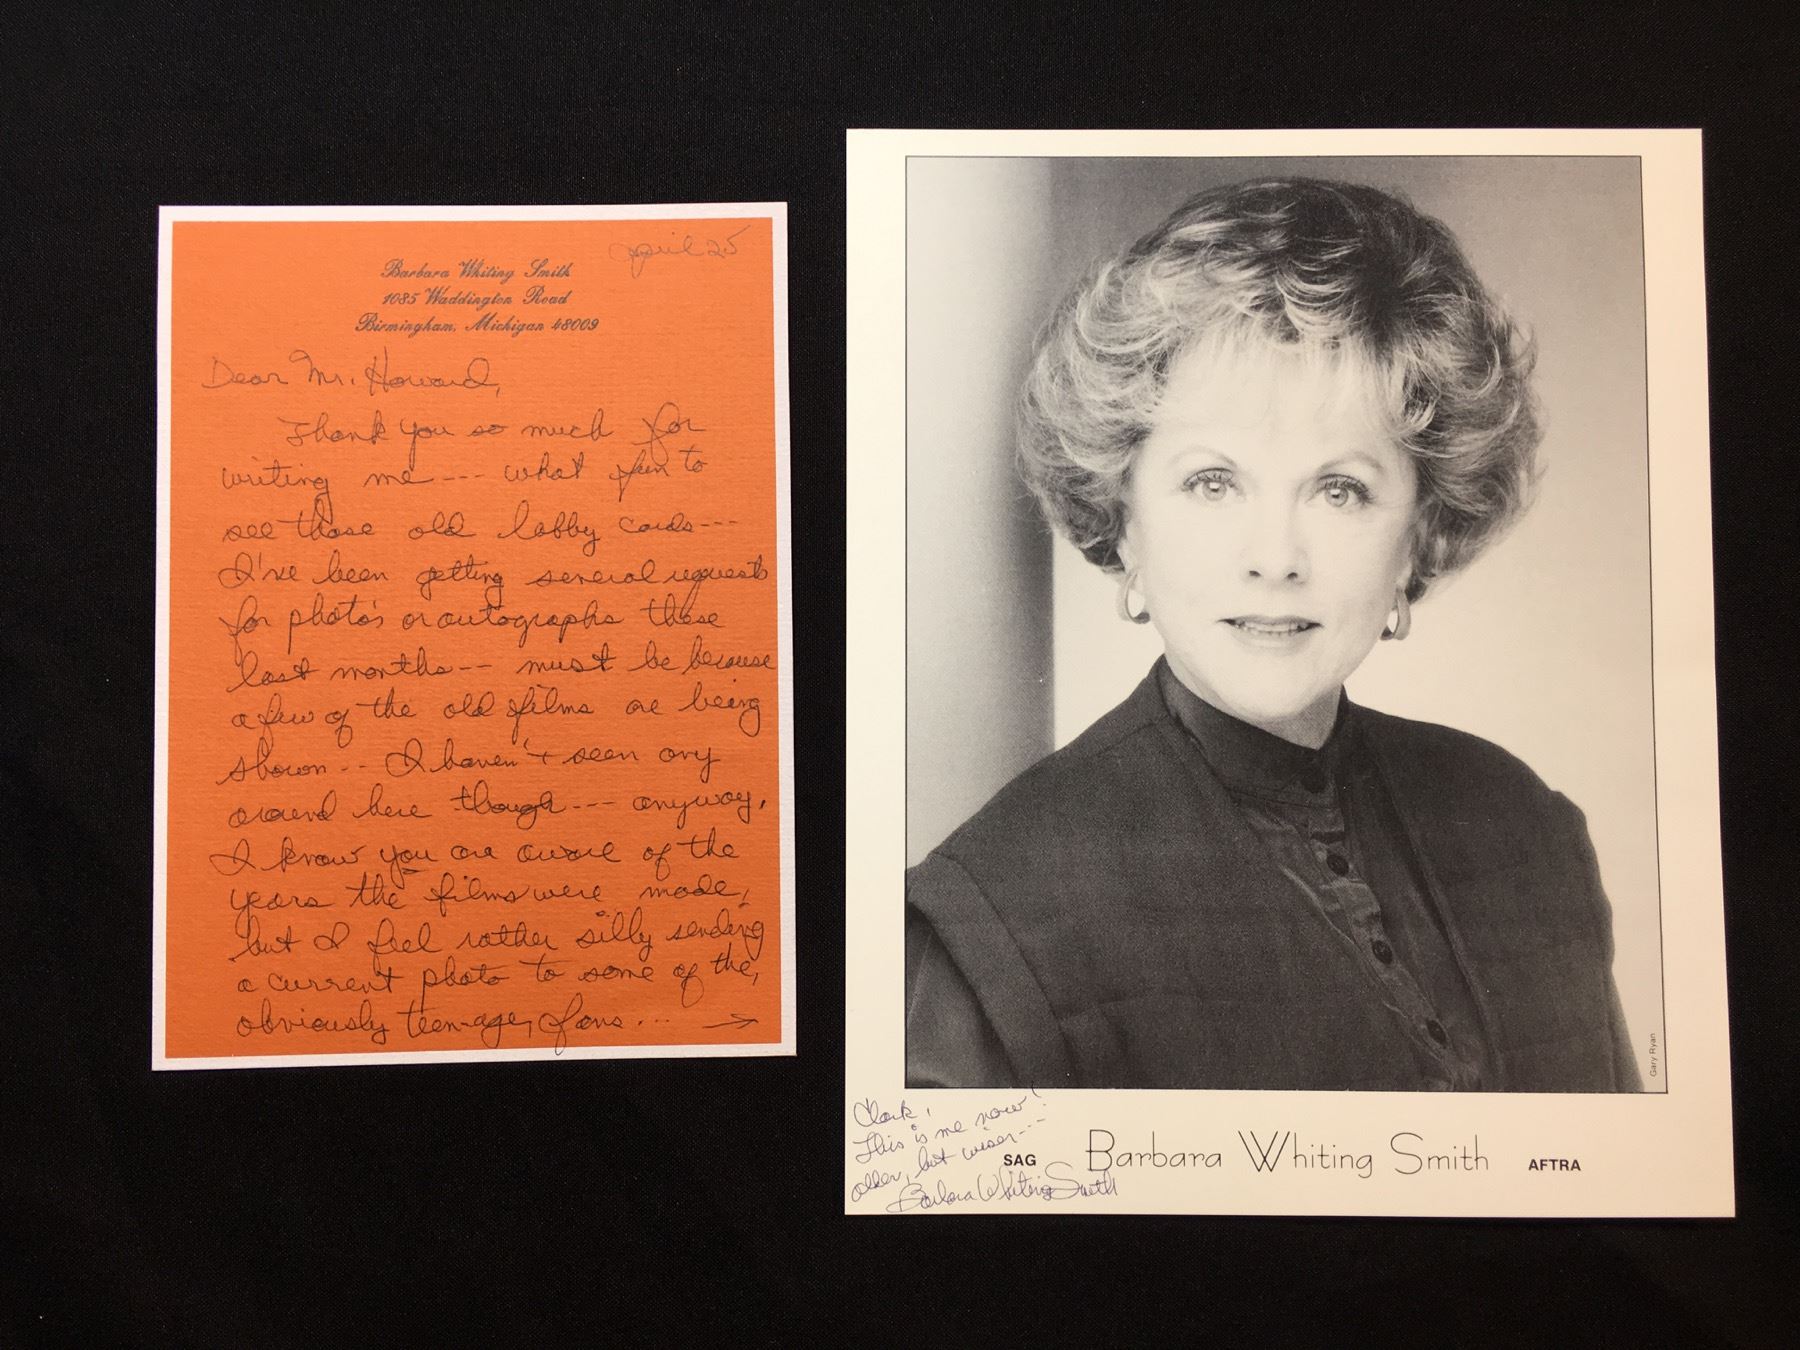 april 25
Barbara Whiting Smith
1085 Waddington Road
Birmingham, Michigan 48009
Dear Mr. Howard,
Thank you so much for
writing me --- what fun to
see those old lobby cards ---
I've been getting several requests
for photo's or autographs these
last months -- must be because
a few of the old films are being
shown -- I haven't seen any
around here though --- anyway,
I know you are aware of the
years the films were made,
but I feel rather silly sending
a current photo to some of the,
obviously teen-age, fans... →
Gary Ryan
Clark,
This is me now!
older, but wiser---
Barbara Whiting Smith
SAG Barbara Whiting Smith AFTRA